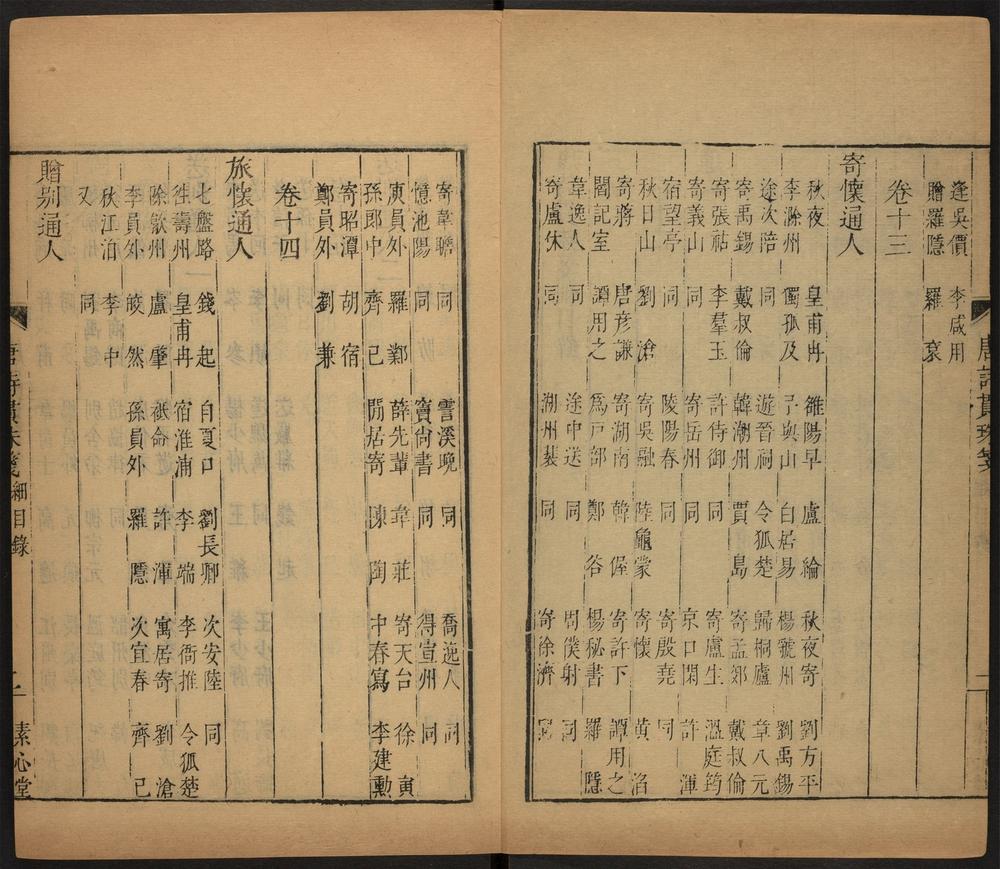 逢吳價 李咸用
贈羅隱 羅袞
卷十三
寄懷通人
秋夜 皇甫冉 雒陽早 盧綸 秋夜寄 劉方平
李滁州 獨孤及 子與山 白居易 楊虢州 劉禹錫
途次陪 同 遊晉祠 令狐楚 歸桐廬 章八元
寄禹錫 戴叔倫 韓潮州 賈島 寄孟郊 戴叔倫
寄張祜 李羣玉 許侍御 同 寄盧生 溫庭筠
寄義山 同 寄岳州 同 京口閑 許渾
宿望亭 同 陵陽春 同 寄殷堯 同
秋日山 劉滄 寄吳融 陸龜蒙 寄懷 黃滔
寄蔣 唐彥謙 寄湖南 韓偓 寄許下 譚用之
閻記室 譚用之 爲戸部 鄭谷 楊秘書 羅隱
韋逸人 同 途中送 同 周僕射 同
寄盧休 同 湖州裴 同 寄徐濟 同
唐詩貫珠箋
寄韋瞻 同 霅溪晚 同 喬逸人 同
憶池陽 同 竇尙書 同 得宣州 同
庾員外 羅鄴 薛先輩 韋莊 寄天台 徐寅
孫郎中 齊己 閒居寄 陳陶 中春寫 李建勲
寄昭潭 胡宿
鄭員外 劉兼
卷十四
旅懷通人
七盤路 錢起 自夏口 劉長卿 次安陸 同
徃壽州 皇甫冉 宿淮浦 李端 李衙推 令狐楚
除歙州 盧肇 祗命 許渾 寓居寄 劉滄
李員外 皎然 孫員外 羅隱 次宜春 齊己
秋江泊 李中
又 同
贈别通人
唐詩貫珠箋 細目錄 二 素心堂